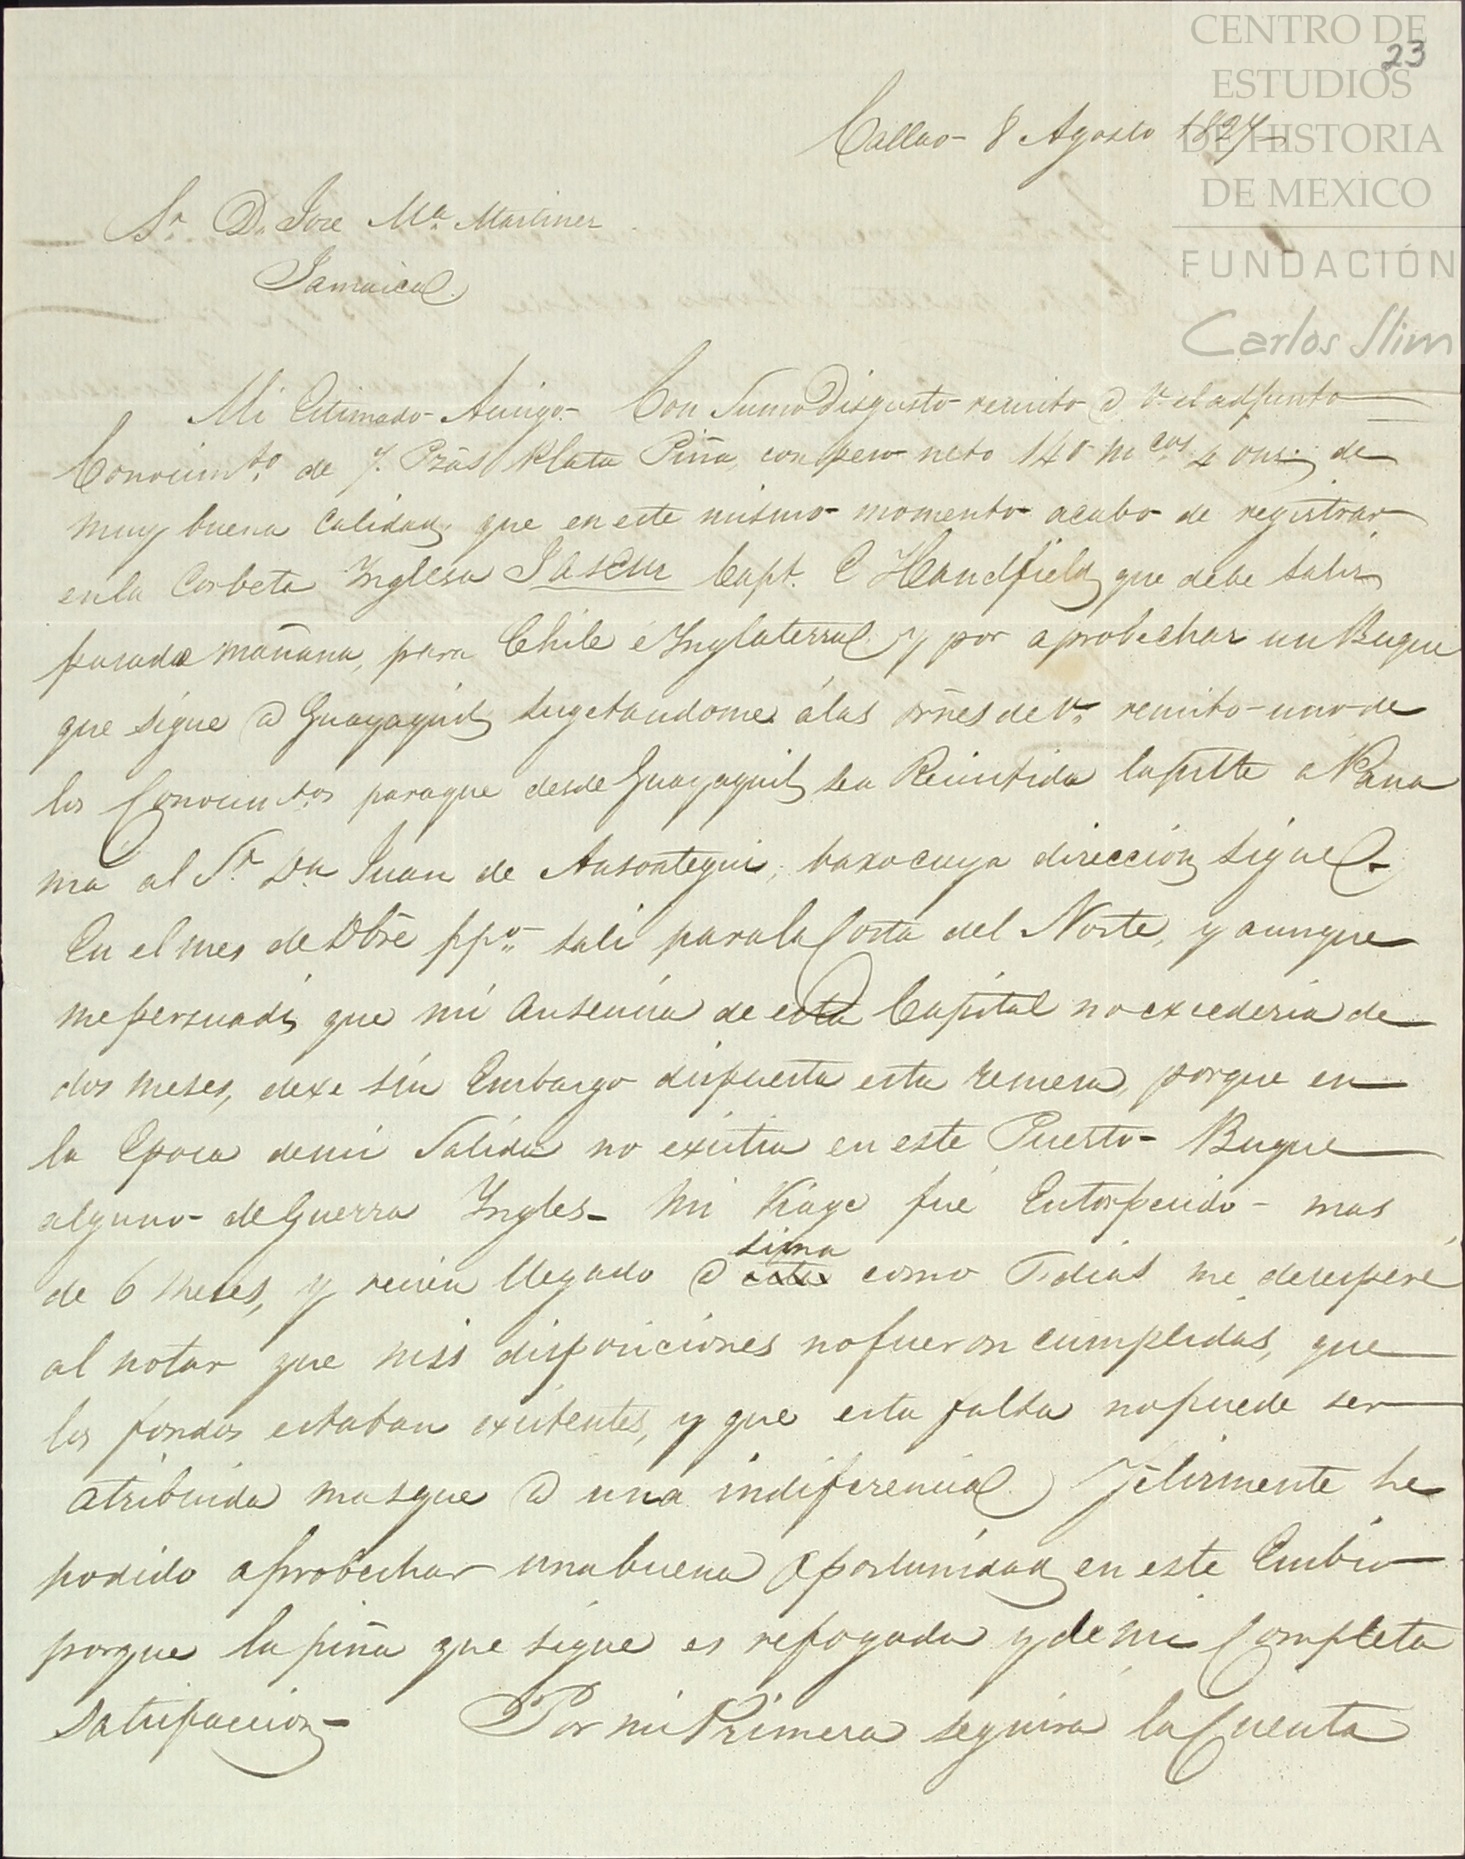 CENTRO DE
ESTUDIOS
DE HISTORIA
DE MEXICO
FUNDACIÓN
Carlos Slim
23
Callao 8 Agosto 1827
Sr. D. Jose Ma. Martinez
Jamaica
Mi Estimado Amigo. Con Sumo Disgusto remito a V. el adjunto
Conocimto. de 7. Pzas Plata Piña, con peso neto 140 mcos 4 onz. de
muy buena Calidad, que en este mismo momento acabo de registrar
en la Corbeta Inglesa Capt. C Handfield, que debe salir
pasado mañana, para Chile é Inglaterra y por aprobechar un Buque
que sigue a Guayaquil, sugetandome á las orñes de V. remito uno de
los Conocimtos para que desde Guayaquil sea Remitida a Pana
ma al Sr. Dn Juan de Ansoategui, baxo cuya dirección sigue.
En el mes de Dbre ppo. sali para la Costa del Norte, y aunque
me persuadi, que mi Ausencia de esta Capital no excederia de
dos meses, dexe sin Embargo dispuesta esta remesa, porque en
la Epoca de mi Salida no existia en este Puerto Buque
alguno de Guerra Yngles. Mi Viage fue Entorpecido mas
de 6 meses, y recien llegado a Lima como dias me desespere
al notar que mis disposiciones no fueron cumplidas, que
los fondos estaban existentes, y que esta falta no puede ser
atribuida mas que a una indiferencia. Felizmente he
podido aprobechar una buena oportunidad, en este Embio
porque la piña que sigue es refogada y de mi Completa
Satisfaccion. Por mi Primera seguira la Cuenta